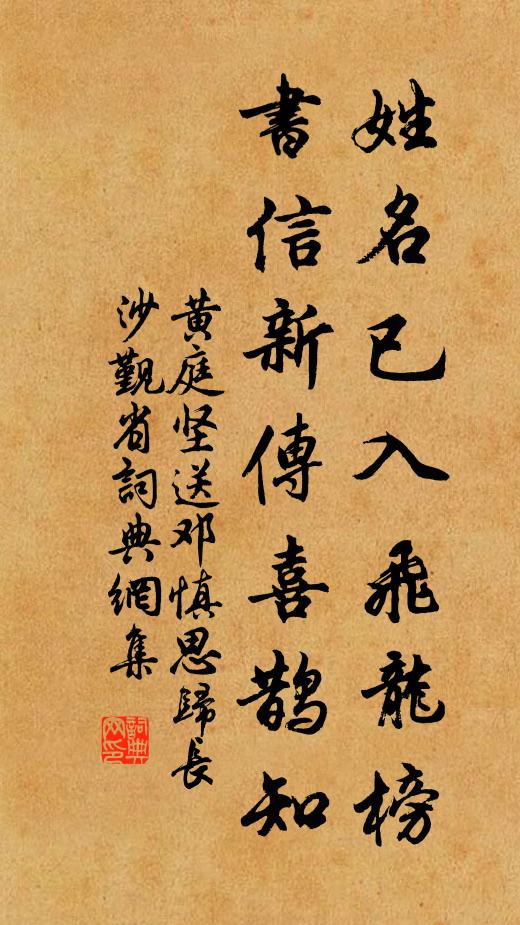 姓名已入飛龍榜
書信新傳喜鵲知
黄庭坚送邓慎思歸長
沙觐省詞典網集
詞典
网印